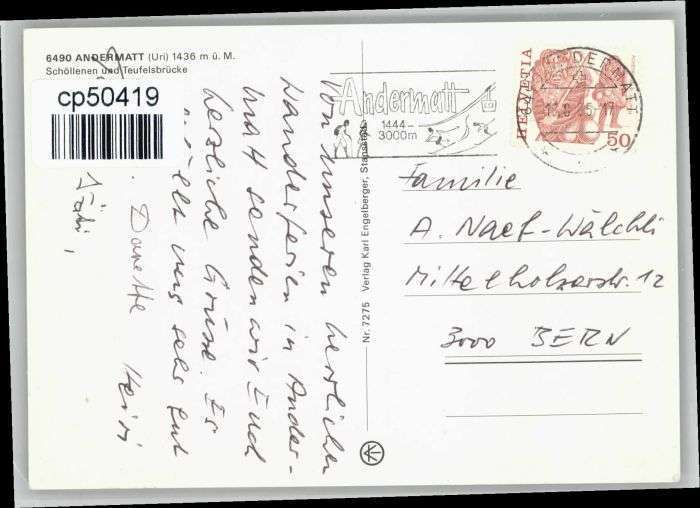 6490 ANDERMATT (Uri) 1436 m ü. M.
Schöllenen und Teufelsbrücke
cp50419
Von unseren herrlichen
Wanderferien in Ander-
matt senden wir Euch
herzliche Grüsse. Es
gefällt uns sehr gut
Danette Heidi
Nr. 7275 Verlag Karl Engelberger, Stansstad
Andermatt
1444–
3000m
ANDERMATT
HELVETIA
50
Familie
A. Naef-Wälchli
Mittelholzerstr. 12
3000 BERN